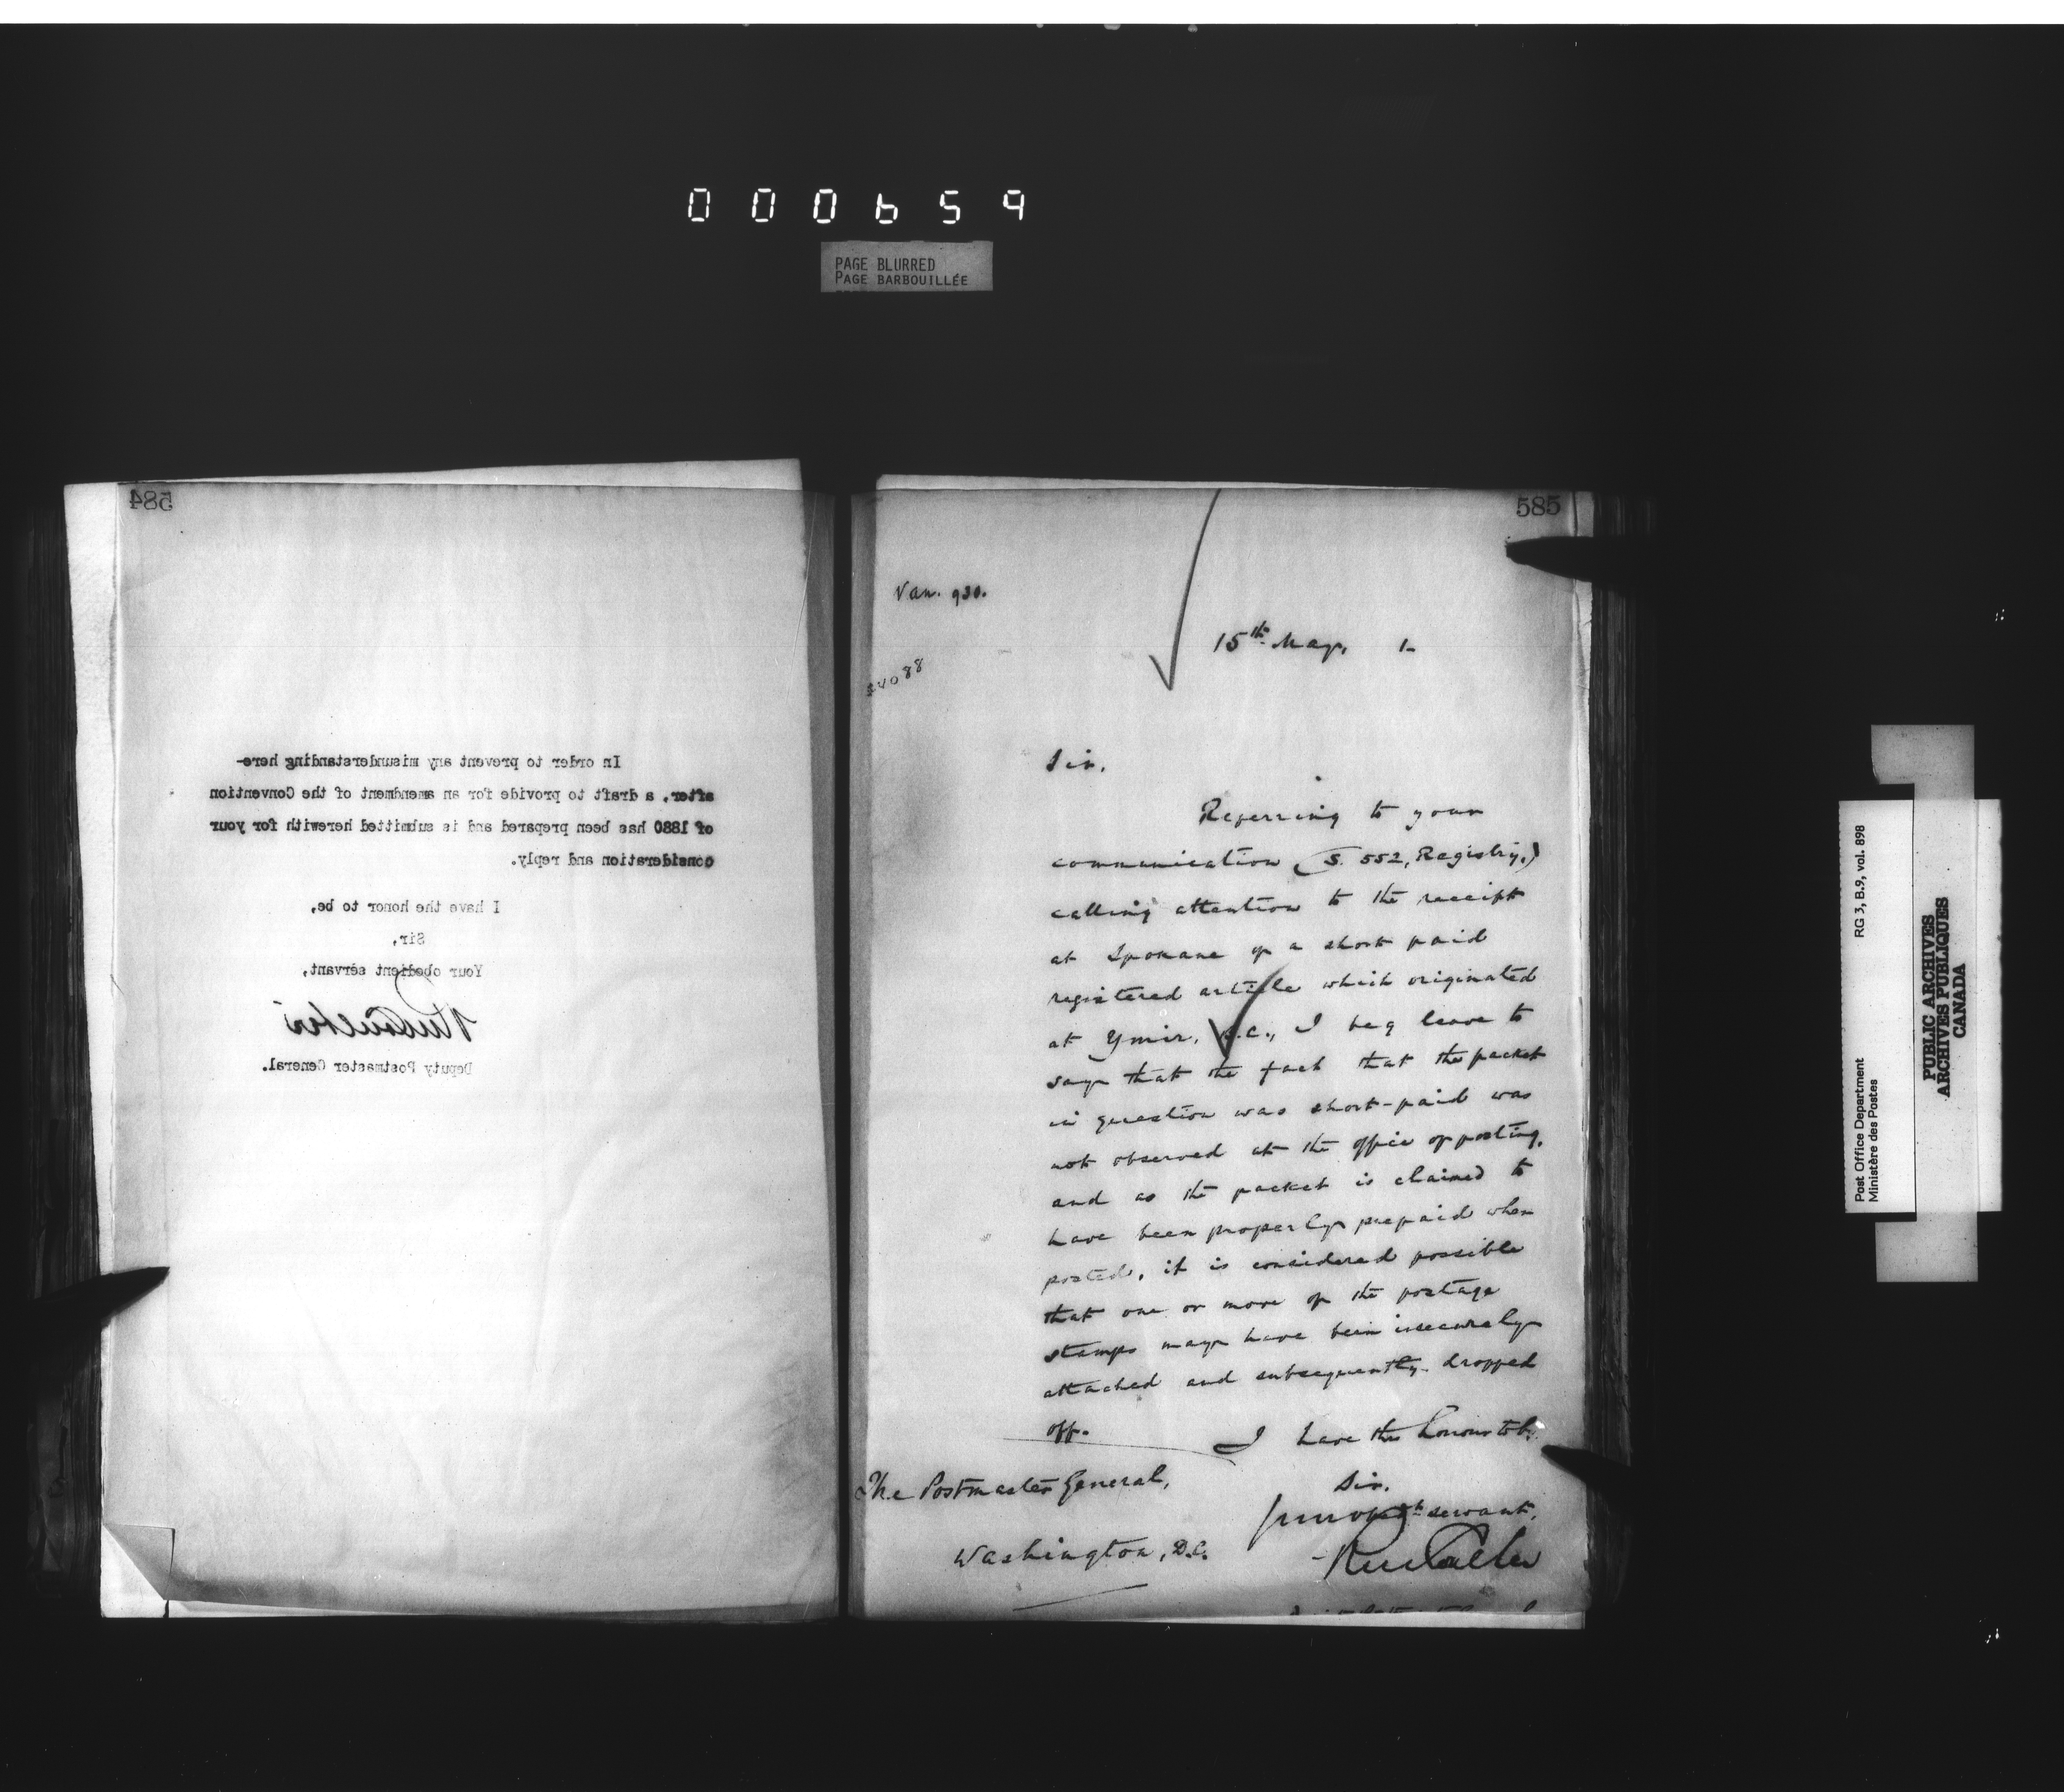 000659
PAGE BLURRED
PAGE BARBOUILLÉE
584
In order to prevent any misunderstanding here-
after, a draft to provide for an amendment of the Convention
of 1880 has been prepared and is submitted herewith for your
consideration and reply.
I have the honor to be,
Sir,
Your obedient servant,
Deputy Postmaster General.
585
Van. 930.
15th May, 1-
Sir,
Referring to your
communication (S. 552, Registry,)
calling attention to the receipt
at Spokane of a short paid
registered article which originated
at Ymir, B.C., I beg leave to
say that the fact that the packet
in question was short-paid was
not observed at the office of posting,
and as the packet is claimed to
have been properly prepaid when
posted, it is considered possible
that one or more of the postage
stamps may have been insecurely
attached and subsequently dropped
off.
I have the honour to be,
Sir,
your obedt servant,
The Postmaster General,
Washington, D.C.
Post Office Department
Ministère des Postes
RG 3, B.9, vol. 898
PUBLIC ARCHIVES
ARCHIVES PUBLIQUES
CANADA